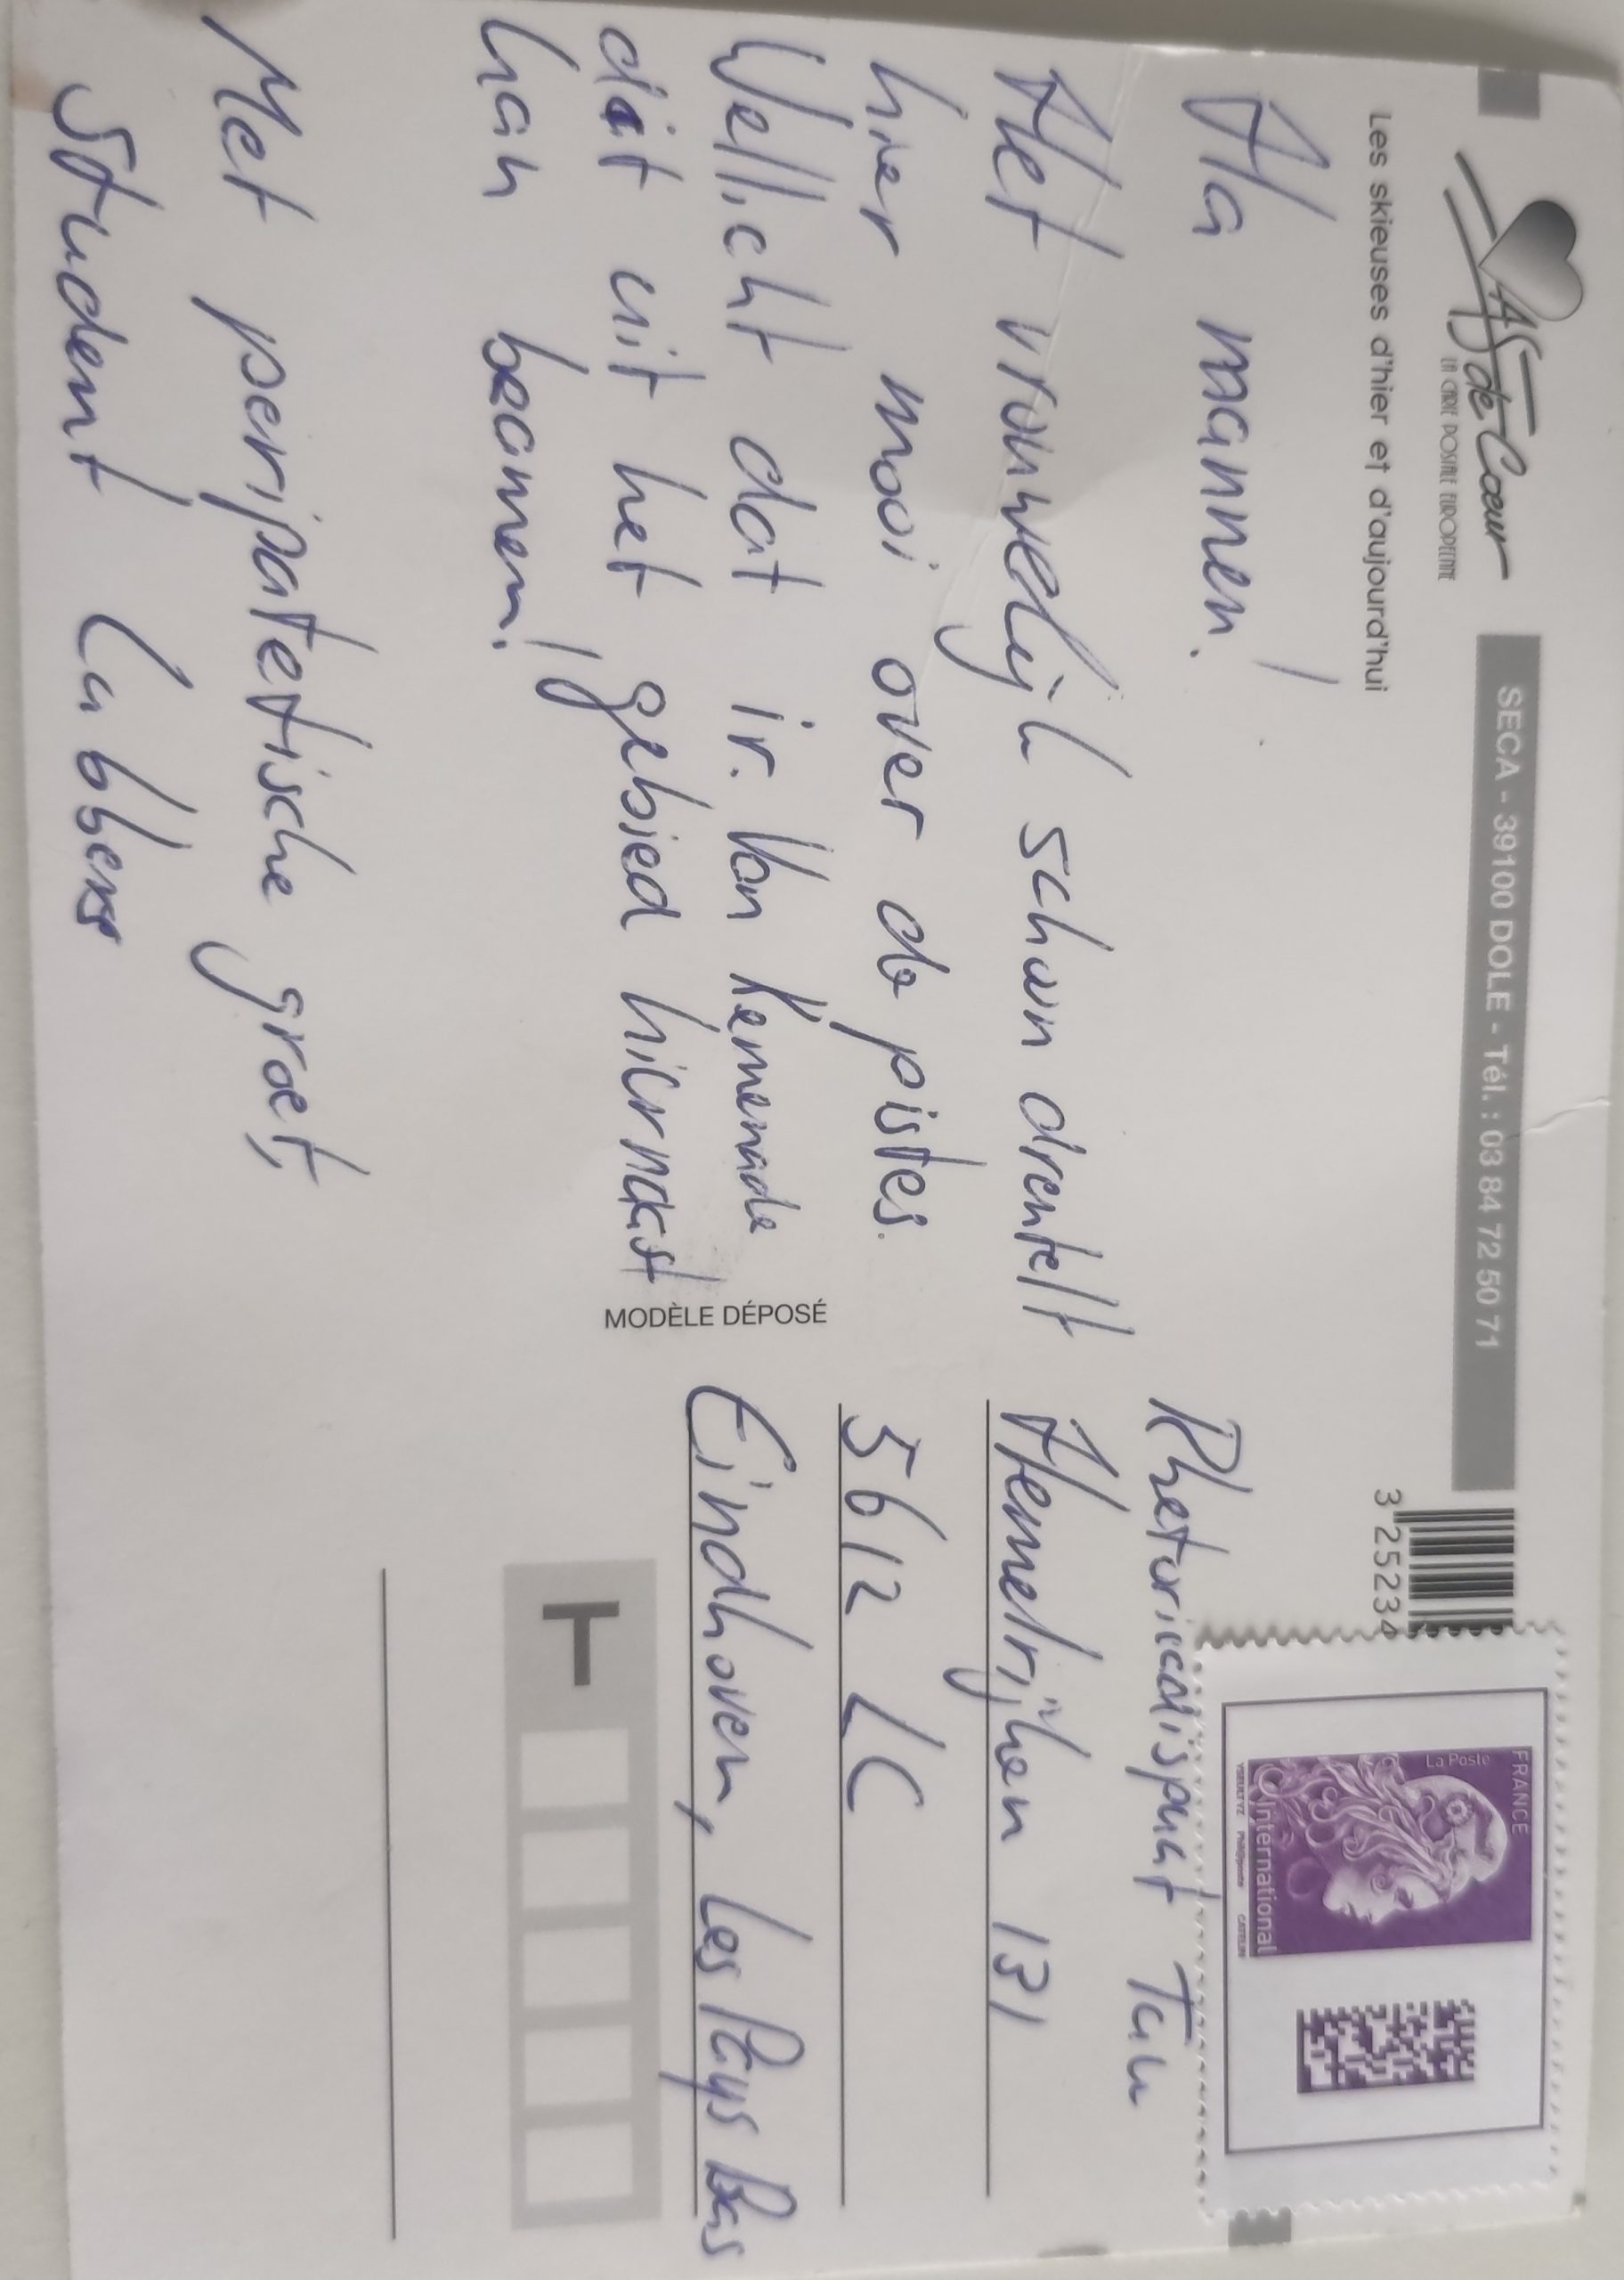 AS de Cœur
LA CARTE POSTALE EUROPEENNE
Les skieuses d'hier et d'aujourd'hui
SECA - 39100 DOLE - Tél. : 03 84 72 50 71
3 25234
FRANCE
La Poste
International
Ha mannen!
Het vrouwelijk schoon drentelt
hier mooi over de pistes.
Wellicht dat ir. Van Kemenade
dit uit het gebied hiernaast
kan beamen!
Met peripatetische groet,
Student Lubbers
MODÈLE DÉPOSÉ
Rhetoricadispuut Tau
Hemelrijken 131
5612 LC
Eindhoven, Les Pays Bas
T